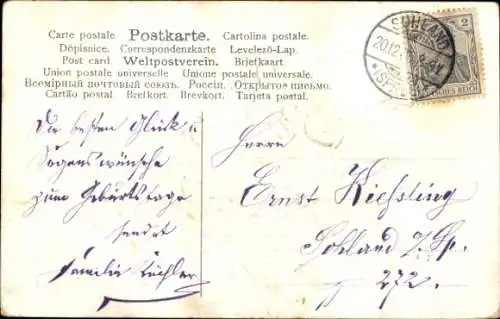 Carte postale Postkarte. Cartolina postale.
Dópisnice. Correspondenzkarte Levelező-Lap.
Post card Weltpostverein. Briefkaart
Union postale universelle Unione postale universale.
Всемірный почтовый союзъ. Россия. Открытое письмо.
Cartão postal Brefkort. Brevkort. Tarjeta postal.
SOHLAND
20.12.
*(SPREE)
2
DEUTSCHES REICH
Die besten Glück u
Segenswünsche
zum Geburtstage
sendet
Familie
Herrn
Ernst Kießling
Sohland /Sp.
272.